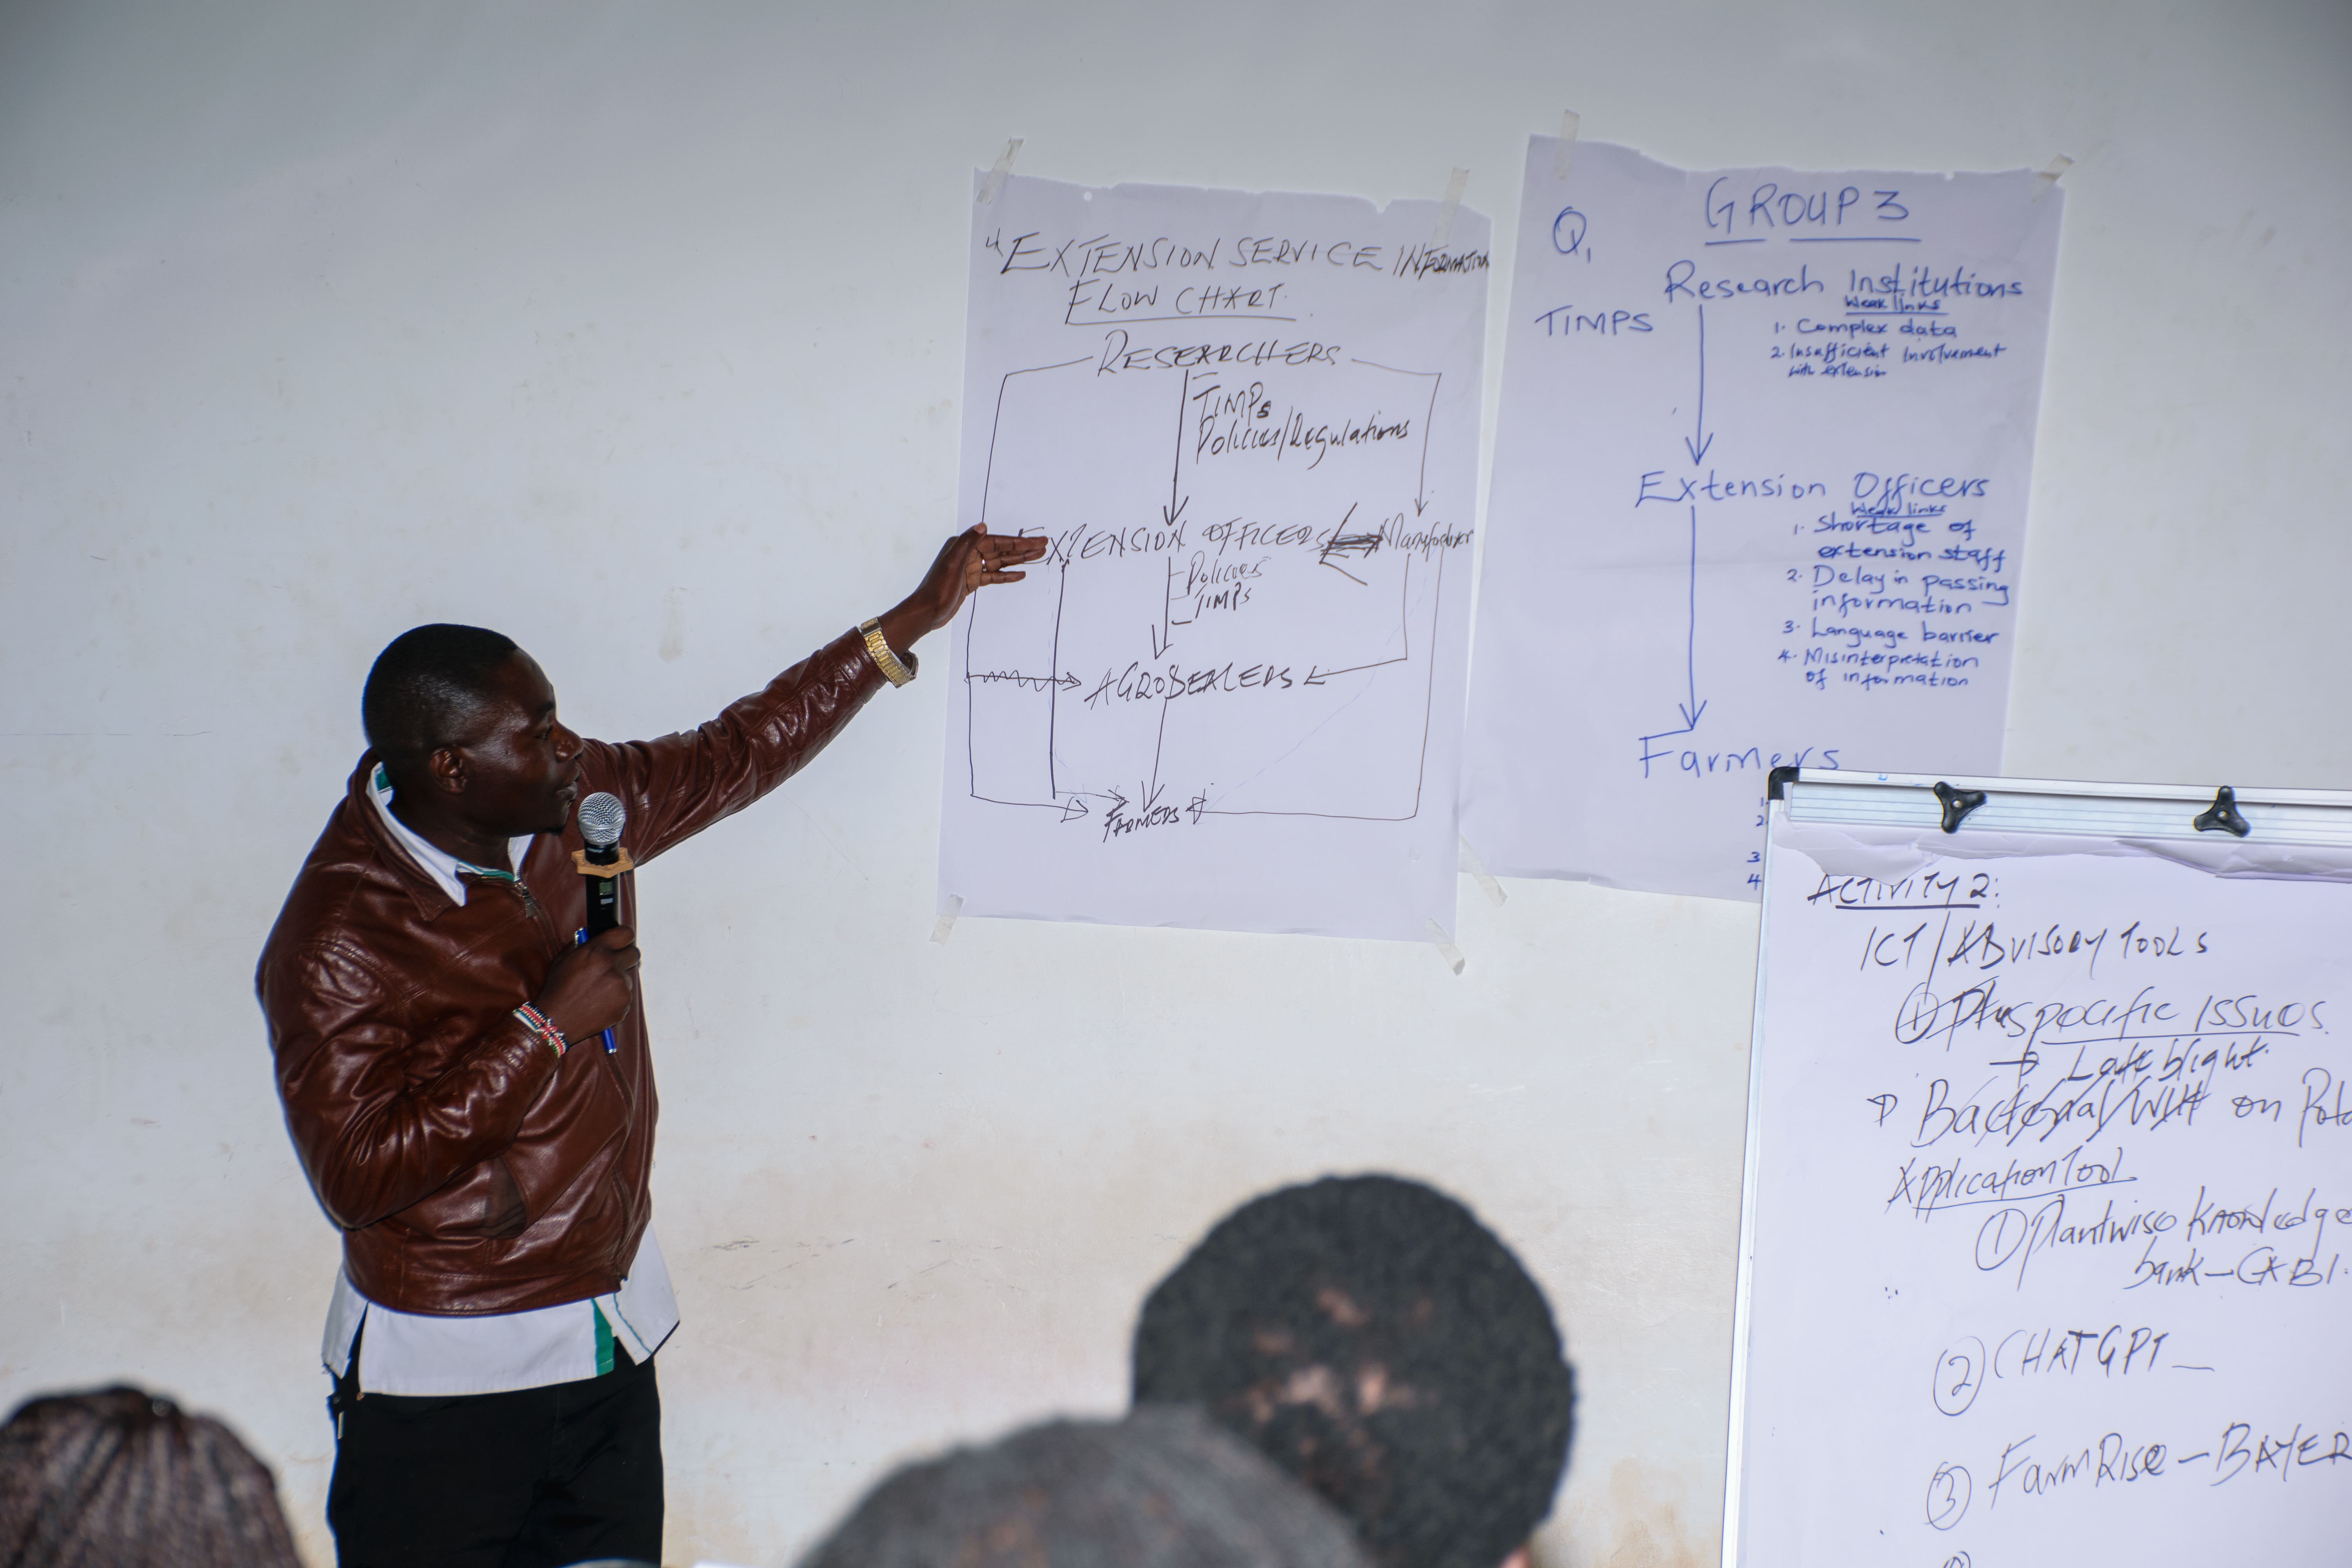 4 EXTENSION SERVICE INFORMATION
FLOW CHART.
RESEARCHERS
TIMPs
Policies/Regulations
EXTENSION OFFICERS
Policies
TIMPs
AGRODEALERS
FARMERS
GROUP 3
Q1
Research Institutions
Weak links
TIMPS
1. Complex data
2. Insufficient Involvement
with extension
Extension Officers
Weak links
1. Shortage of
extension staff
2. Delay in passing
information
3. Language barrier
4. Misinterpretation
of information
Farmers
1.
2.
3
4
ACTIVITY 2:
ICT/ADVISORY TOOLS
① specific Issues.
→ Late blight.
Bacterial Wilt on Pota
Application Tool
① Plantwise Knowledge
bank – CABI.
② CHATGPT –
③ FarmRise – BAYER